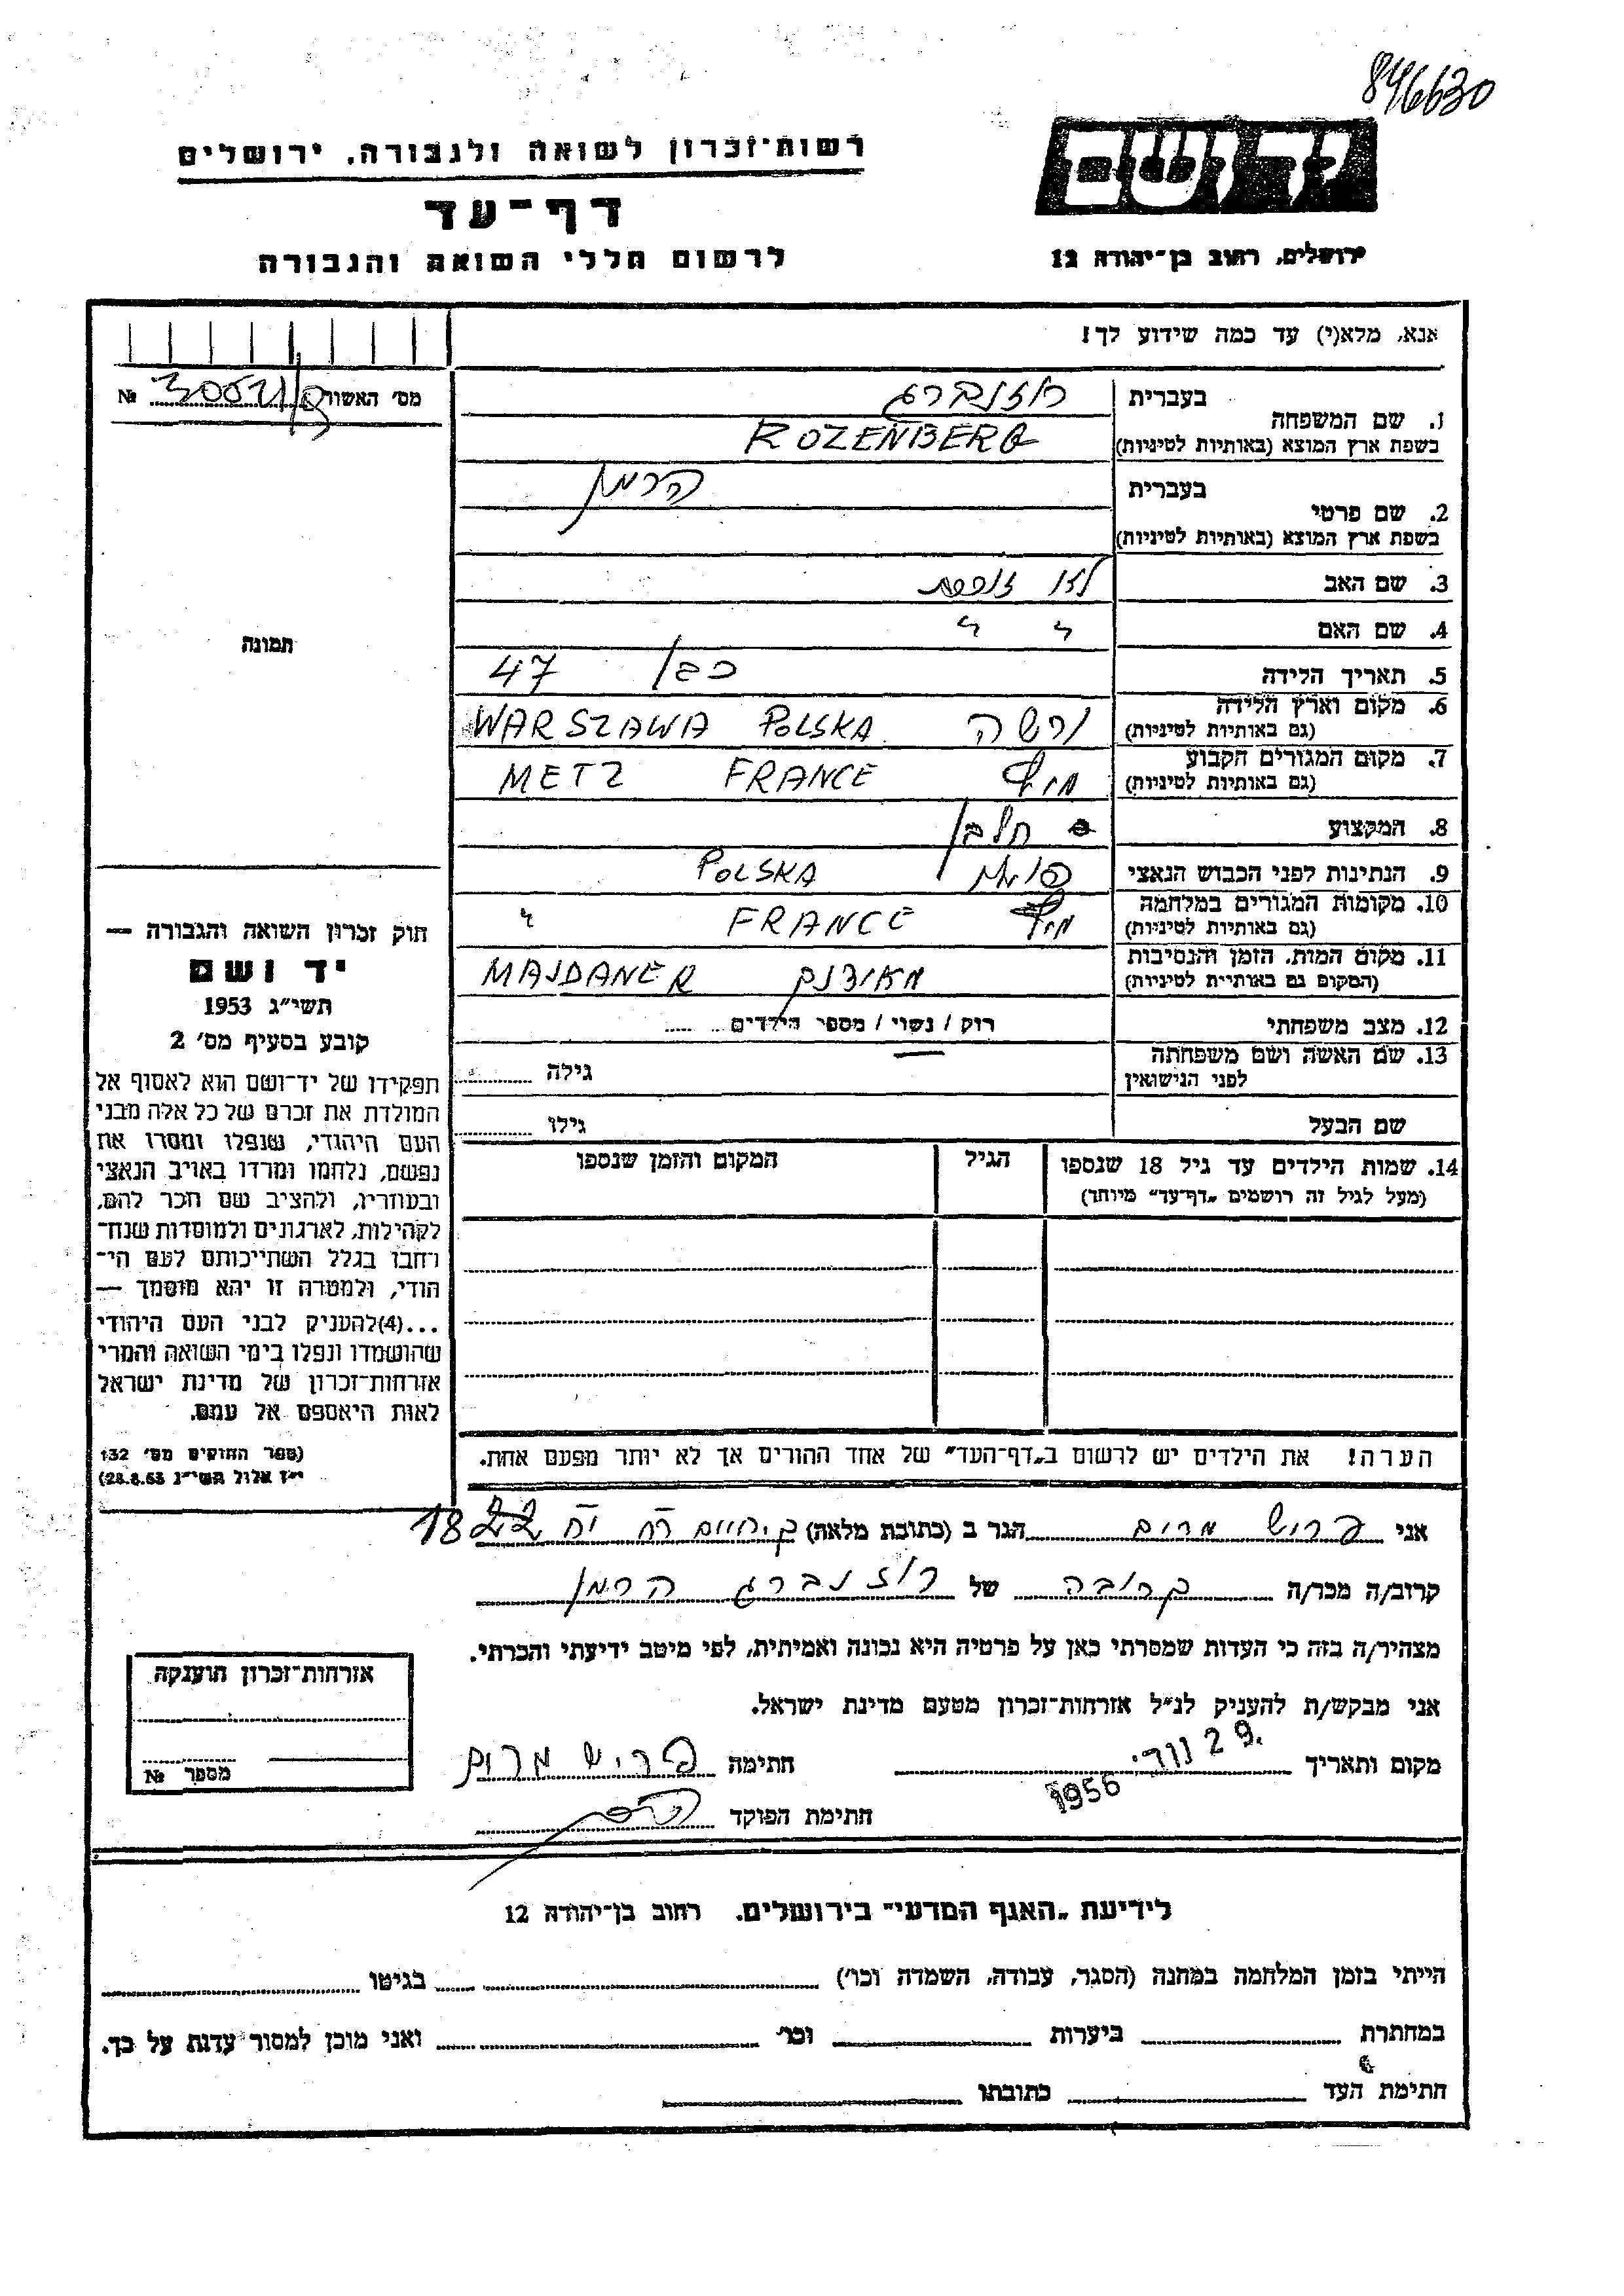 846630
רשות־זכרון לשואה ולגבורה, ירושלים
יד ושם
דף־עד
לרשום חללי השואה והגבורה
ירושלים, רחוב בן־יהודה 12
אנא, מלא(י) עד כמה שידוע לך!
מס׳ האשור № 30051/
1. שם המשפחה
בעברית רוזנברג
בשפת ארץ המוצא (באותיות לטיניות) ROZENBERG
2. שם פרטי
בעברית הרמן
בשפת ארץ המוצא (באותיות לטיניות)
3. שם האב לא זוכרת
4. שם האם " "
5. תאריך הלידה כבן 47
6. מקום וארץ הלידה (גם באותיות לטיניות) ורשה WARSZAWA POLSKA
7. מקום המגורים הקבוע (גם באותיות לטיניות) מץ METZ FRANCE
8. המקצוע חלבן
9. הנתינות לפני הכבוש הנאצי פולנית POLSKA
10. מקומות המגורים במלחמה (גם באותיות לטיניות) FRANCE "
11. מקום המות, הזמן והנסיבות (המקום גם באותיית לטיניות) MAJDANEK
12. מצב משפחתי רוק / נשוי / מספר הילדים
13. שם האשה ושם משפחתה לפני הנישואין גילה
שם הבעל גילו
14. שמות הילדים עד גיל 18 שנספו (מעל לגיל זה רושמים „דף־עד” מיוחד)
הגיל
המקום והזמן שנספו
הערה! את הילדים יש לרשום ב„דף־העד” של אחד ההורים אך לא יותר מפעם אחת.
תמונה
חוק זכרון השואה והגבורה —
יד ושם
תשי״ג 1953
קובע בסעיף מס׳ 2
תפקידו של יד־ושם הוא לאסוף אל
המולדת את זכרם של כל אלה מבני
העם היהודי, שנפלו ומסרו את
נפשם, נלחמו ומרדו באויב הנאצי
ובעוזריו, ולהציב שם וזכר להם,
לקהילות, לארגונים ולמוסדות שנח־
רחבו בגלל השתייכותם לעם הי־
הודי, ולמטרה זו יהא מוסמך —
...(4)להעניק לבני העם היהודי
שהושמדו ונפלו בימי השואה והמרי
אזרחות־זכרון של מדינת ישראל
לאות היאספם אל עמם.
(ספר החוקים מס׳ 132
י״ז אלול תשי״ג 28.8.53)
אני פריש מרים הגר ב (כתובת מלאה) ק. חיים רח 18
קרוב/ה מכר/ה קרובה של רוזנברג הרמן
מצהיר/ה בזה כי העדות שמסרתי כאן על פרטיה היא נכונה ואמיתית, לפי מיטב ידיעתי והכרתי.
אני מבקש/ת להעניק לנ״ל אזרחות־זכרון מטעם מדינת ישראל.
מקום ותאריך 29 1956 חתימה פריש מרים
חתימת הפוקד
אזרחות־זכרון הוענקה
מספר №
לידיעת „האגף המדעי” בירושלים, רחוב בן־יהודה 12
הייתי בזמן המלחמה במחנה (הסגר, עבודה, השמדה וכו׳) בגיטו
במחתרת ביערות וכו׳ ואני מוכן למסור עדות על כך.
חתימת העד כתובתו